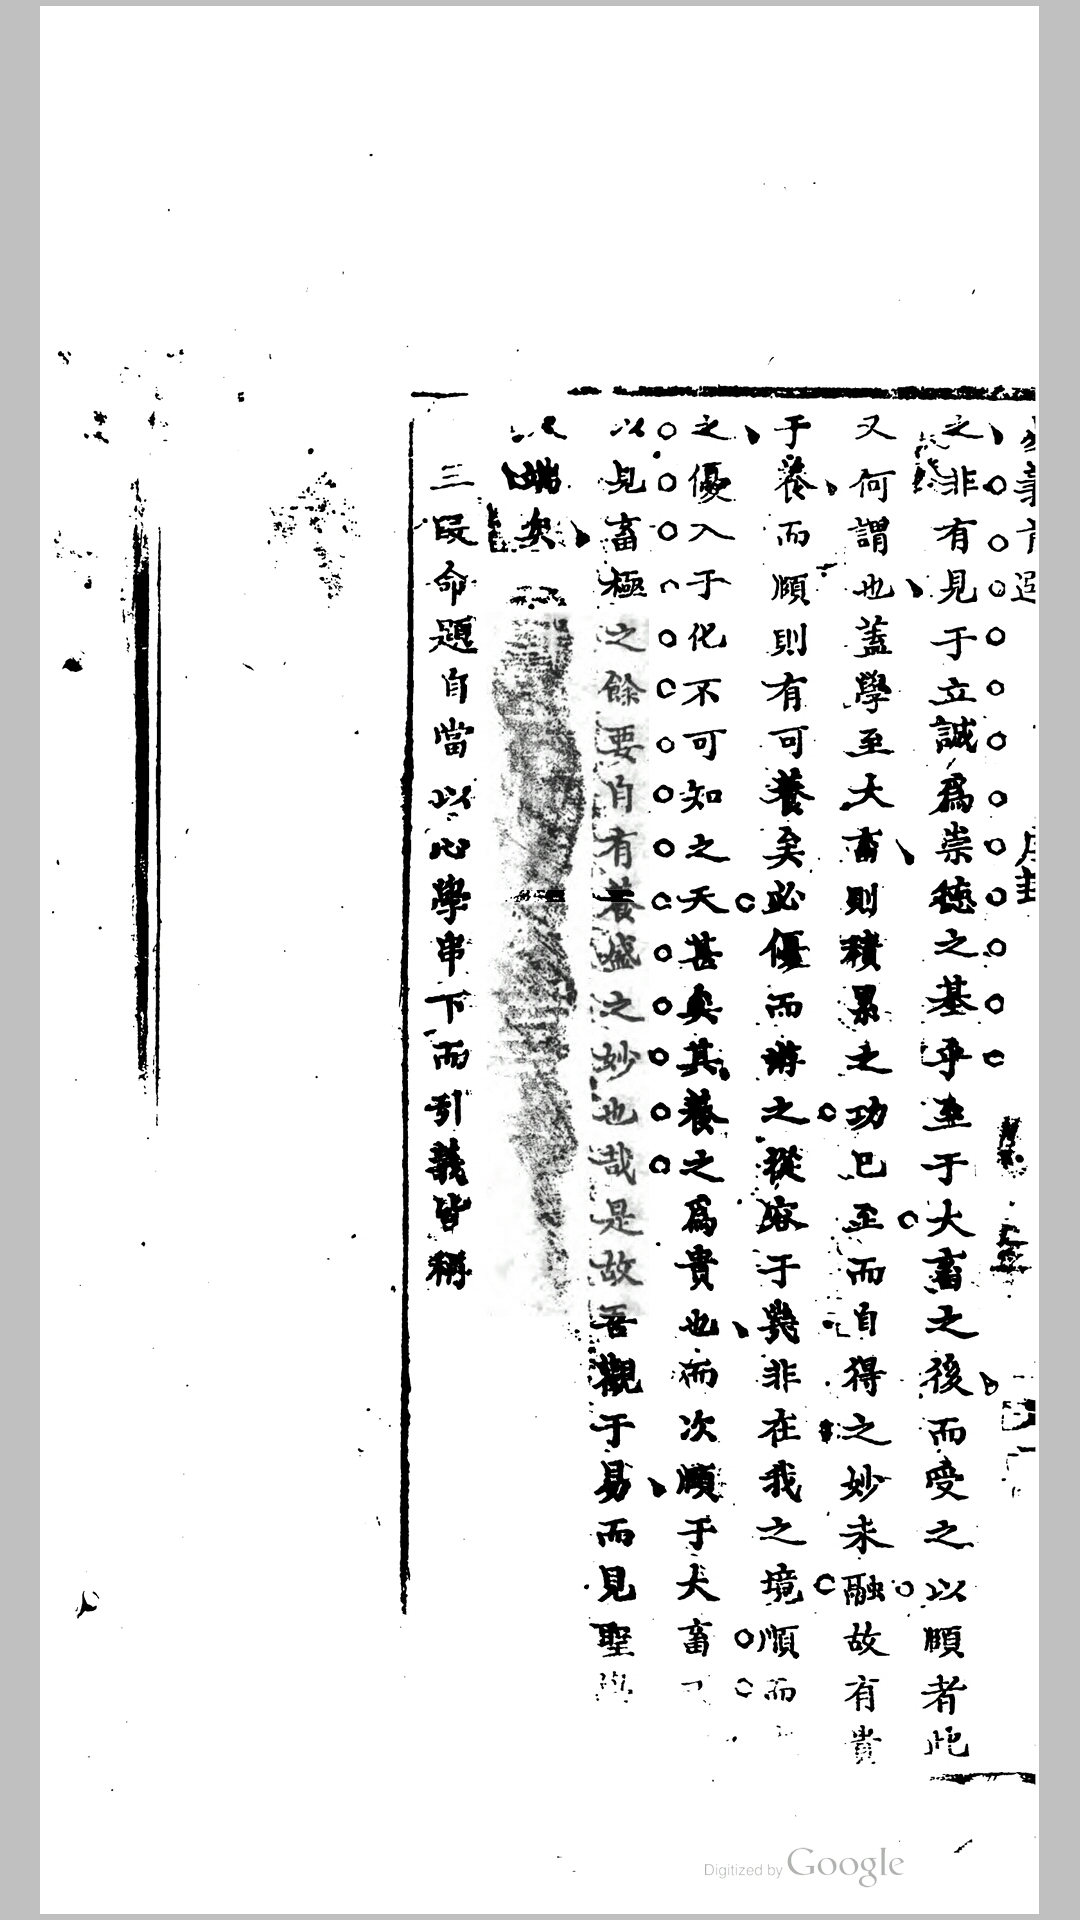 之非有見于立誠爲崇德之基乎至于大畜之後而受之以頤者此
又何謂也蓋學至大畜則積累之功已至而自得之妙未融故有貴
于養而頤則有可養矣必優而游之從容于勢非在我之境順而
之優入于化不可知之天甚矣其養之爲貴也而次頤于大畜
以見畜極之餘要自有養盛之妙也哉是故吾觀于易而見聖學
端矣
三段命題自當以心學串下而引義皆稱
Digitized by Google